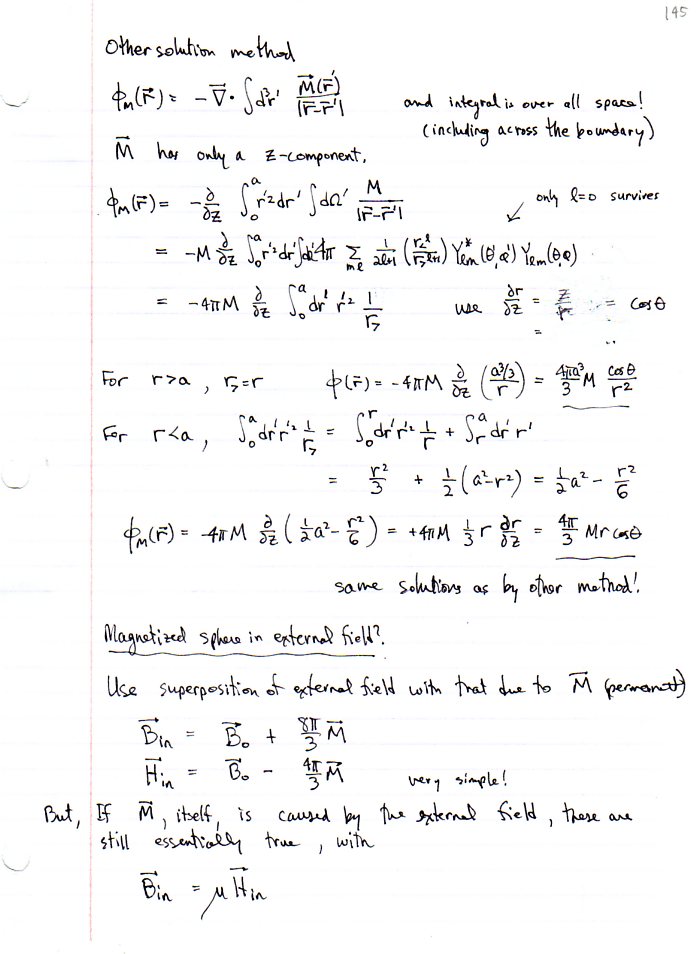 145
Other solution method
ϕ_M(r⃗) = -∇⃗ · ∫d³r' M⃗(r⃗')/|r⃗-r⃗'| and integral is over all space!
(including across the boundary)
M⃗ has only a z-component,
ϕ_M(r⃗) = -∂/∂z ∫₀^a r'² dr' ∫dΩ' M/|r⃗-r⃗'| only l=0 survives
= -M ∂/∂z ∫₀^a r'² dr' ∫dΩ' 4π Σ_{ml} 1/(2l+1) (r_<^l / r_>^{l+1}) Y_{lm}^*(θ',φ') Y_{lm}(θ,φ)
= -4πM ∂/∂z ∫₀^a dr' r'² 1/r_> use ∂r/∂z = z/r = cosθ
For r>a, r_>=r ϕ(r⃗) = -4πM ∂/∂z ((a³/3)/r) = (4πa³/3) M cosθ/r²
For r<a, ∫₀^a dr' r'² 1/r_> = ∫₀^r dr' r'² 1/r + ∫_r^a dr' r'
= r²/3 + ½(a²-r²) = ½a² - r²/6
ϕ_M(r⃗) = -4πM ∂/∂z (½a² - r²/6) = +4πM ⅓ r ∂r/∂z = (4π/3) Mr cosθ
same solutions as by other method!
Magnetized sphere in external field?
Use superposition of external field with that due to M⃗ (permanent)
B⃗_in = B⃗_o + (8π/3) M⃗
H⃗_in = B⃗_o - (4π/3) M⃗ very simple!
But, If M⃗, itself, is caused by the external field, these are
still essentially true, with
B⃗_in = μ H⃗_in